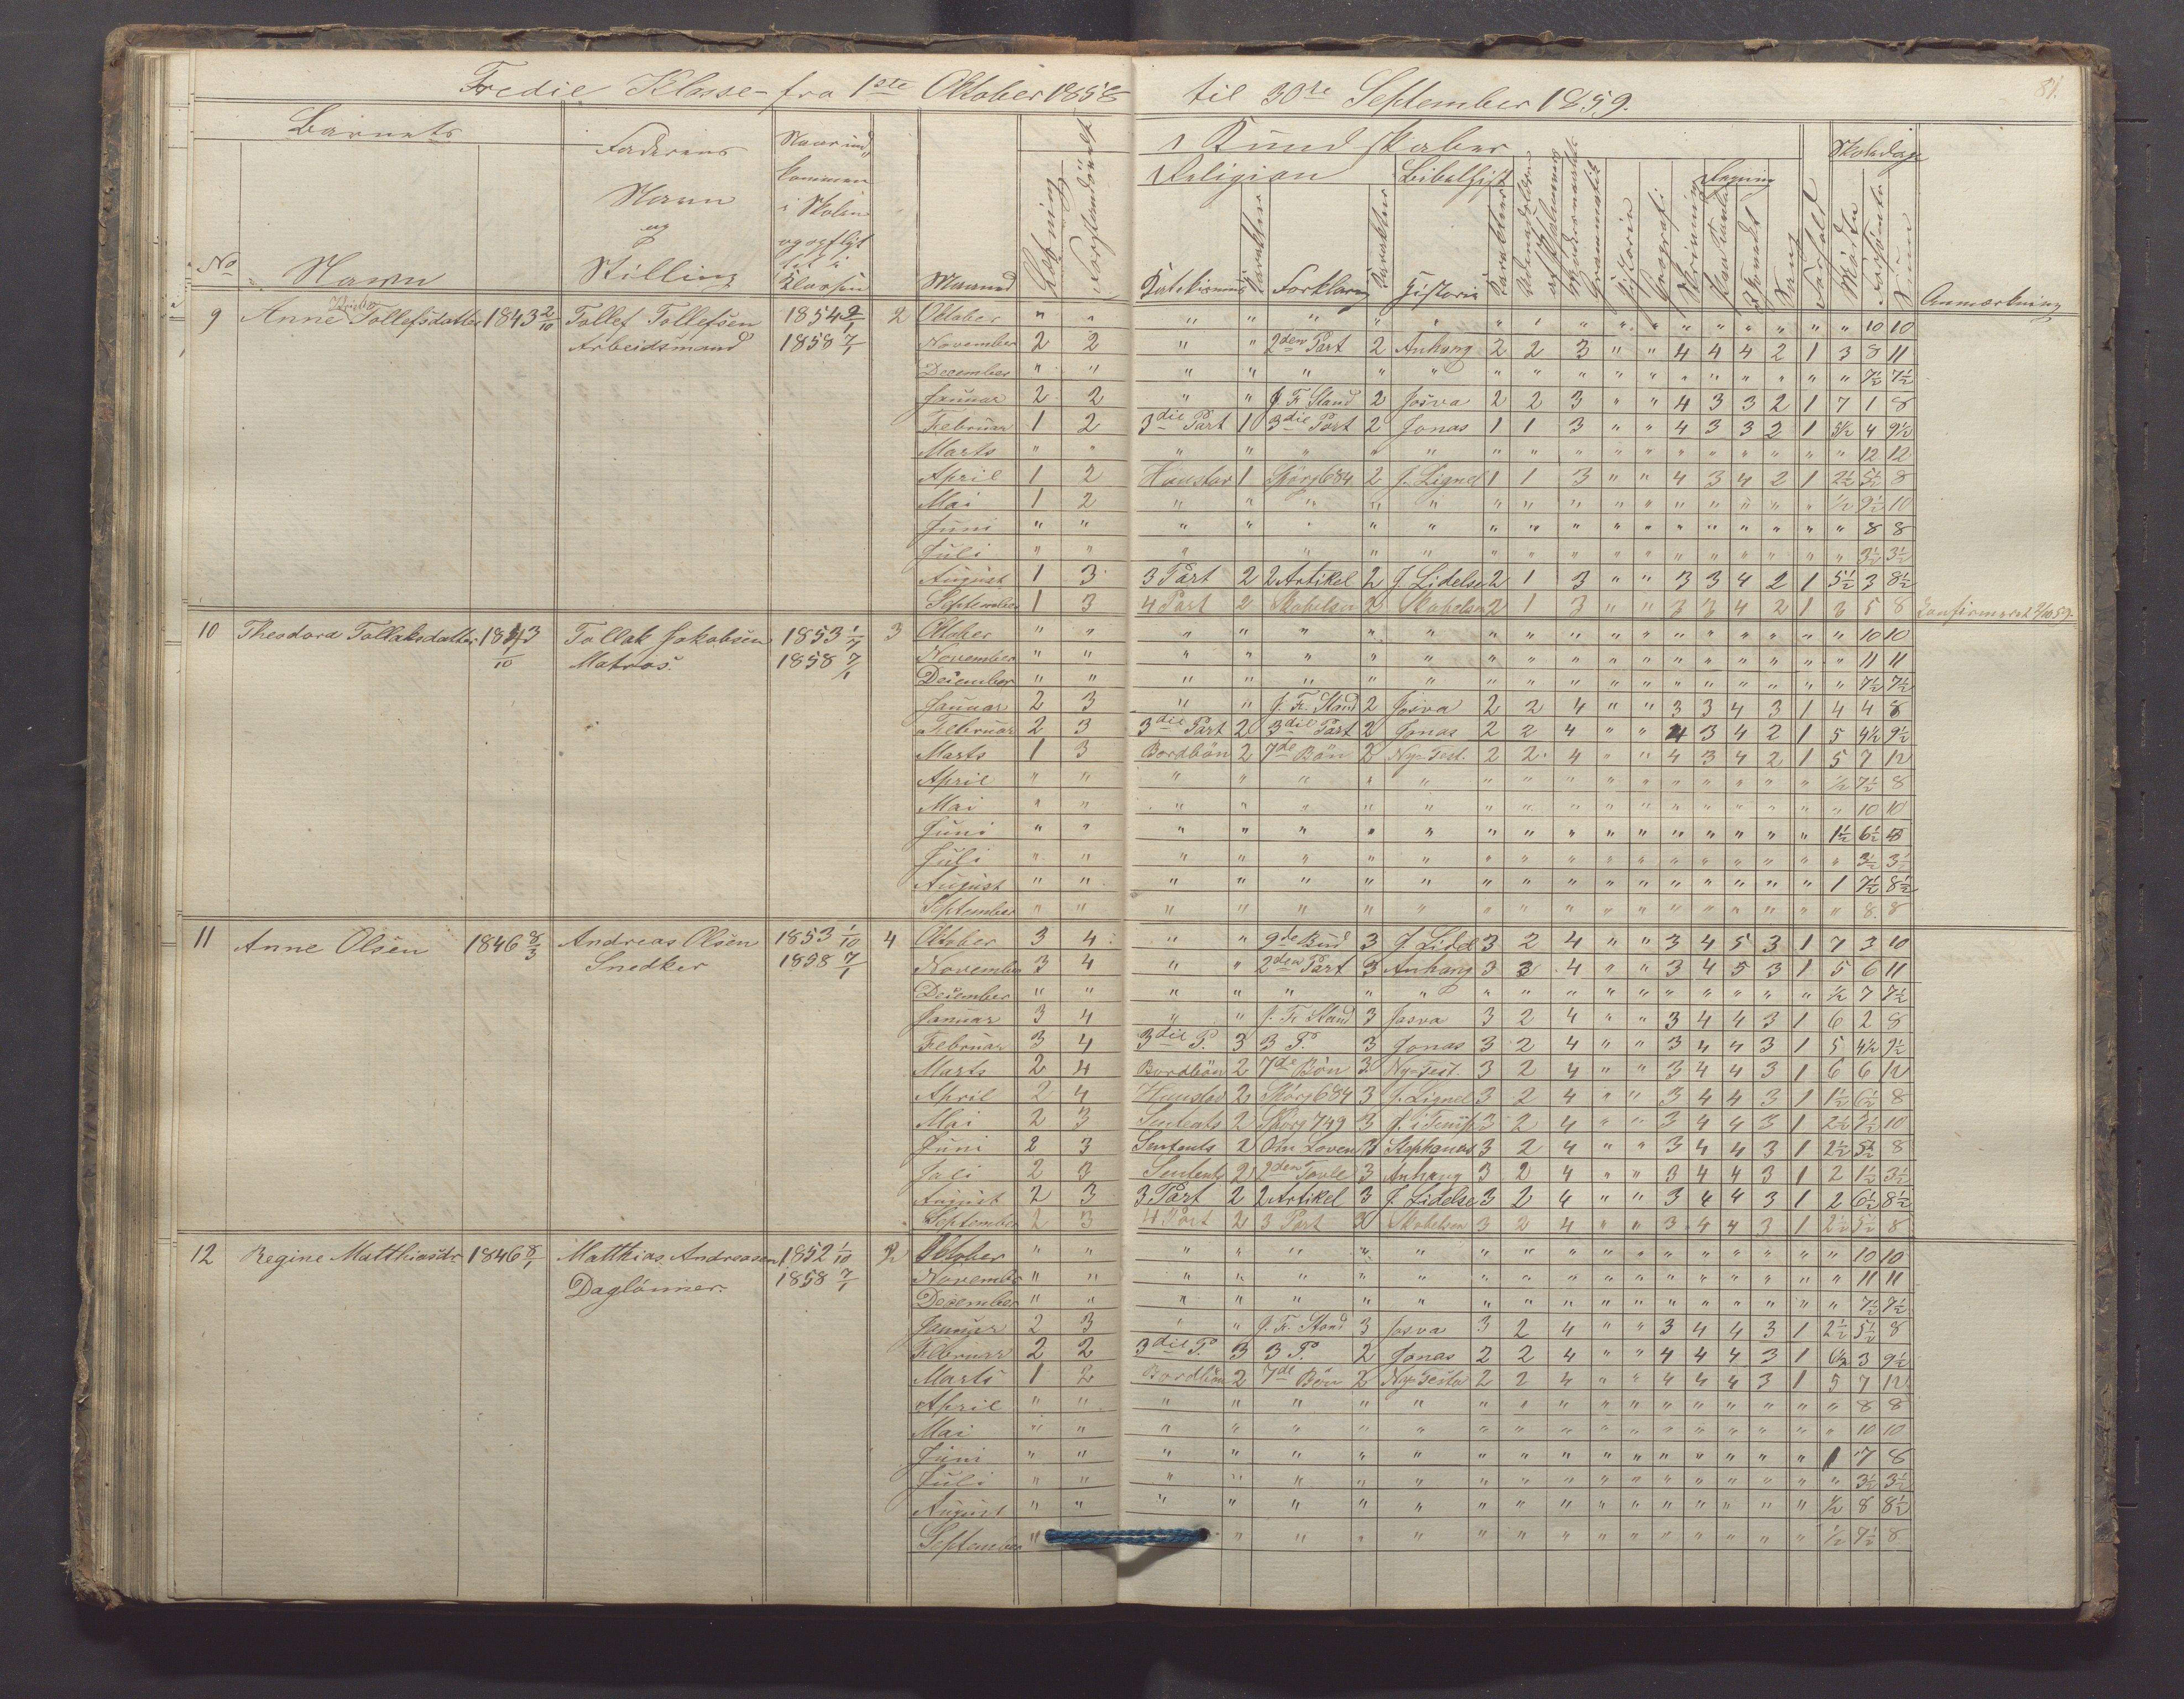 81.
Tredie Klasse fra 1ste Oktober 1858 til 30te September 1859.
Barnets
Faderens Navn og Stilling
Naar ind kommen i Skolen og opflyt tet i Klassen
Kundskaber
Religion
Bibelhist
Regning
Skoledage
No Navn Maaned Læsning Katekismus Karakter Forklaring Karakter Historie Karakter Grammatik Historie Geografi Skrivning Sang Forhold Mødte Forsømte Sum Anmærkning
9 Anne Tollefsdatter 1843 2/10 Tollef Tollefsen 1854 2 Oktober " " " " " " " " " " " " " " " " " " " 10 10
Arbeidsmand 1858 7/1 November 2 2 " " 2den Part 2 Anhang 2 2 3 " " 4 4 4 2 1 3 8 11
December " " " " " " " " " " " " " " " " " " 7½ 7½
Januar 2 2 " " J. Fr. Stand 2 Josva 2 2 3 " " 4 3 3 2 1 7 1 8
Februar 1 2 3die Part 1 3die Part 2 Jonas 1 1 3 " " 4 3 3 2 1 5½ 4 9½
Marts " " " " " " " " " " " " " " " " " " 12 12
April 1 2 Hustav 1 Spörg 684 2 J. Lignel 1 1 3 " " 4 3 4 2 1 2½ 5½ 8
Mai 1 2 " " " " " " " " " " " " " " " ½ 9½ 10
Juni " " " " " " " " " " " " " " " " " " 8 8
Juli " " " " " " " " " " " " " " " " " " 3½ 3½
August 1 3 3 Part 2 2 Artikel 2 J. Lidelse 2 1 3 " " 3 3 4 2 1 5½ 3 8½
September 1 3 4 Part 2 Skabelsen 2 Skabelsen 2 1 3 " " 3 3 4 2 1 3 5 8 Konfirmeret 2/10 59.
10 Theodora Tollaksdatter 1843 Tollak Jakobsen 1853 3 Oktober " " " " " " " " " " " " " " " " " " 10 10
/10 Matros 1858 7/1 November " " " " " " " " " " " " " " " " " " 11 11
December " " " " " " " " " " " " " " " " " " 7½ 7½
Januar 2 3 " " J. Fr. Stand 2 Josva 2 2 4 " " 3 3 4 3 1 4 4 8
Februar 2 3 3die Part 2 3die Part 2 Jonas 2 2 4 " " 4 3 4 2 1 5 4½ 9½
Marts 1 3 Bordbön 2 7de Bön 2 Ny-Test. 2 2 4 " " 4 3 4 2 1 5 7 12
April " " " " " " " " " " " " " " " " " ½ 7½ 8
Mai " " " " " " " " " " " " " " " " " " 10 10
Juni " " " " " " " " " " " " " " " " " 1½ 6½ 8
Juli " " " " " " " " " " " " " " " " " " 3½ 3½
August " " " " " " " " " " " " " " " " " 1 7½ 8½
September " " " " " " " " " " " " " " " " " " 8 8
11 Anne Olsen 1846 8/3 Andreas Olsen 1853 1/10 4 Oktober 3 4 " " 9de Bud 3 J. Lidel 3 2 4 " " 3 4 5 3 1 7 3 10
Snedker 1858 7/1 November 3 4 " " 2den Part 3 Anhang 3 3 4 " " 3 4 5 3 1 5 6 11
December " " " " " " " " " " " " " " " " " ½ 7 7½
Januar 3 4 " " J. Fr. Stand 3 Josva 3 2 4 " " 3 4 4 3 1 6 2 8
Februar 3 4 3die P. 3 3 P. 3 Jonas 3 2 4 " " 3 4 4 3 1 5 4½ 9½
Marts 2 4 Bordbön 2 7de Bön 3 Ny-Test. 3 2 4 " " 3 4 4 3 1 6 6 12
April 2 4 Hustav 2 Spörg 684 3 J. Lignel 3 2 4 " " 3 4 4 3 1 1½ 6½ 8
Mai 2 3 Sentents 2 Spörg 749 3 J. i Temp 3 2 4 " " 3 4 4 3 1 2½ 7½ 10
Juni 2 3 Sentents 2 Om Loven 3 Stephanas 3 2 4 " " 3 4 4 3 1 2½ 5½ 8
Juli 2 3 Sentents 2 2den Tavle 3 Anhang 3 2 4 " " 3 4 4 3 1 2 1½ 3½
August 2 3 3 Part 2 2 Artikel 3 J. Lidelse 3 2 4 " " 3 4 4 3 1 2 6½ 8½
September 2 3 4 Part 2 3 Part 3 Skabelsen 3 2 4 " " 3 4 4 3 1 2½ 5½ 8
12 Regine Matthiasdr. 1846 8/1 Matthias Andreasen 1852 1/10 2 Oktober " " " " " " " " " " " " " " " " " " 10 10
Daglönner. 1858 7/1 November " " " " " " " " " " " " " " " " " " 11 11
December " " " " " " " " " " " " " " " " " " 7½ 7½
Januar 2 3 " " J. Fr. Stand 3 Josva 3 2 4 " " 3 4 4 3 1 2½ 5½ 8
Februar 2 2 3die P. 3 3 P. 2 Jonas 2 2 4 " " 4 4 4 3 1 6½ 3 9½
Marts 1 2 Bordbön 2 7de Bön 2 Ny-Testa 2 2 4 " " 4 4 4 3 1 5 7 12
April " " " " " " " " " " " " " " " " " " 8 8
Mai " " " " " " " " " " " " " " " " " " 10 10
Juni " " " " " " " " " " " " " " " " " 1 7 8
Juli " " " " " " " " " " " " " " " " " " 3½ 3½
August " " " " " " " " " " " " " " " " " ½ 8 8½
September " " " " " " " " " " " " " " " " ½ 7½ 8